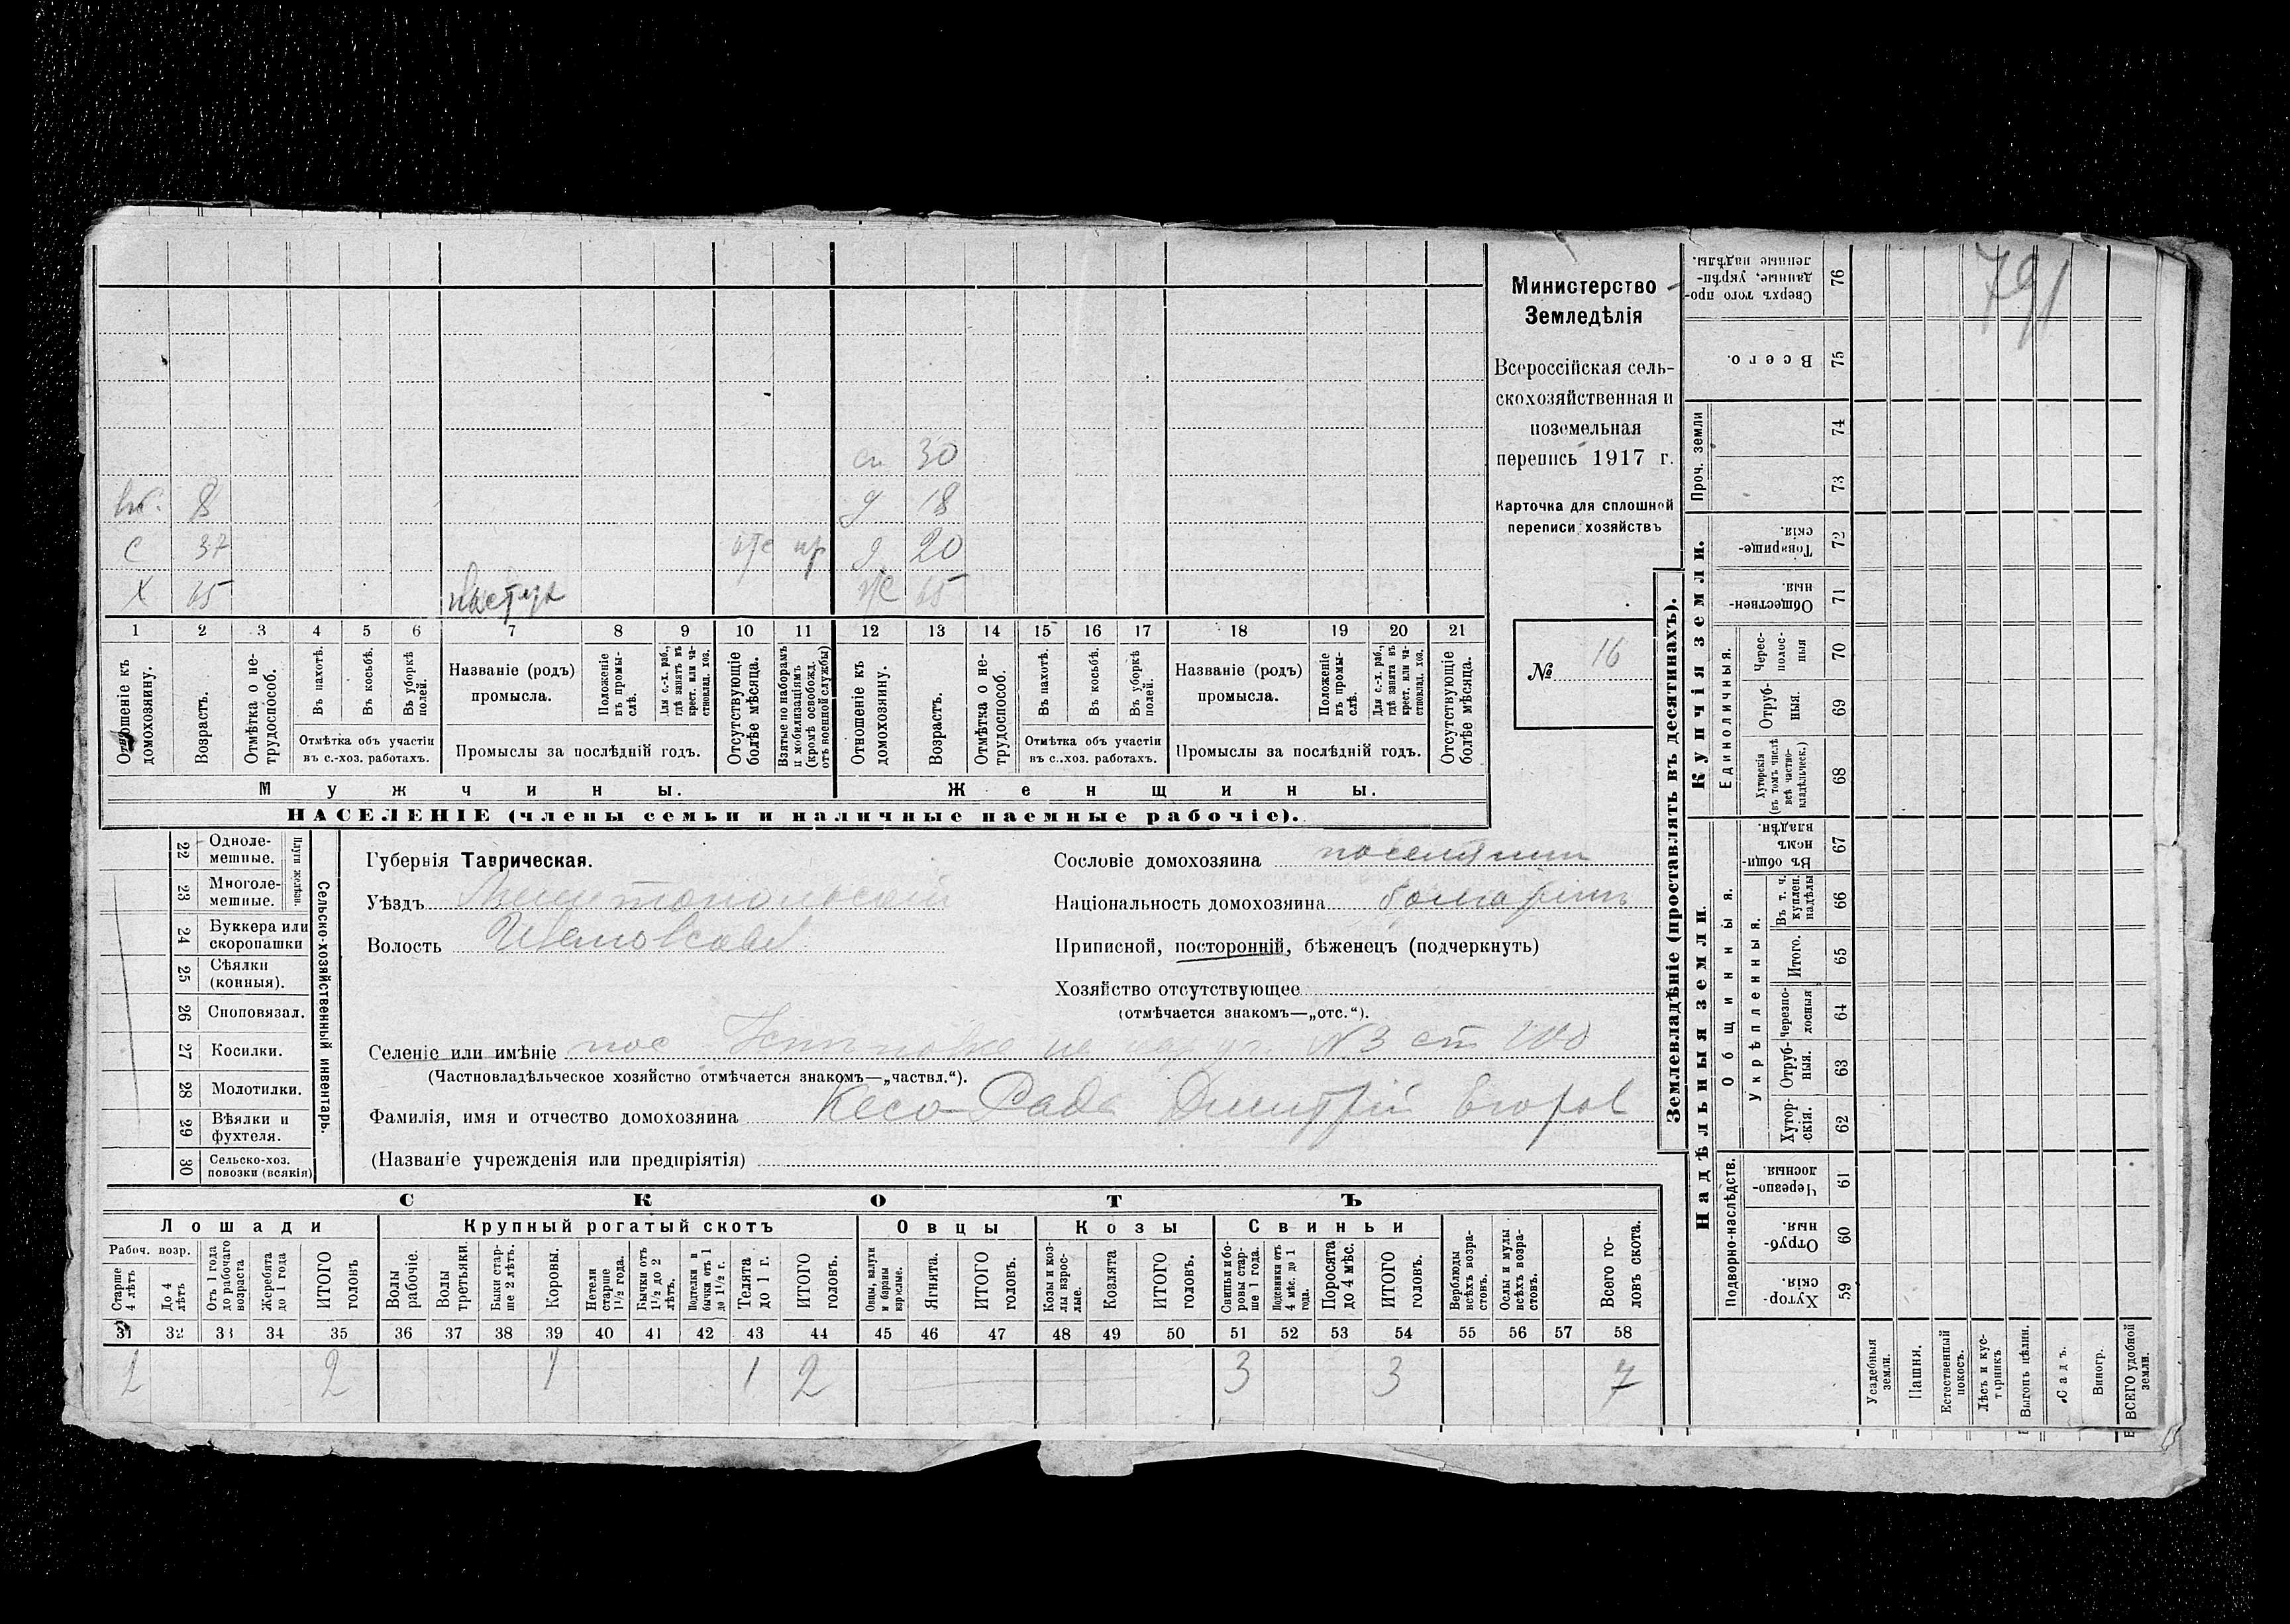 791
Министерство
Земледѣлія
Всероссійская сель-
скохозяйственная и
поземельная
перепись 1917 г.
Карточка для сплошной
переписи хозяйствъ
№ 16
сн 30
вн. 8 д 18
с 37 отс пр д 20
х 65 пастух ж 65
1 2 3 4 5 6 7 8 9 10 11 12 13 14 15 16 17 18 19 20 21
Отношеніе къ домохозяину.
Возрастъ.
Отмѣтка о не-трудоспособ.
Въ пахотѣ.
Въ косьбѣ.
Въ уборкѣ полей.
Отмѣтка объ участіи
въ с.-хоз. работахъ.
Названіе (родъ)
промысла.
Положеніе въ промы-слѣ.
Для с.-х. раб., гдѣ занятъ въ крест. или ча-стновлад. хоз.
Промыслы за послѣдній годъ.
Отсутствующіе болѣе мѣсяца.
Взятые по наборамъ и мобилизаціямъ (кромѣ освобожд. отъ военной службы)
Отношеніе къ домохозяину.
Возрастъ.
Отмѣтка о не-трудоспособ.
Въ пахотѣ.
Въ косьбѣ.
Въ уборкѣ полей.
Отмѣтка объ участіи
въ с.-хоз. работахъ.
Названіе (родъ)
промысла.
Положеніе въ промы-слѣ.
Для с.-х. раб., гдѣ занята въ крест. или ча-стновлад. хоз.
Промыслы за послѣдній годъ.
Отсутствующіе болѣе мѣсяца.
Мужчины. Женщины.
НАСЕЛЕНІЕ (члены семьи и наличные наемные рабочіе).
Сельско-хозяйственный инвентарь.
Плуги желѣзн.
22 Одноле-мешные.
23 Многоле-мешные.
24 Буккера или скоропашки
25 Сѣялки (конныя).
26 Сноповязал.
27 Косилки.
28 Молотилки.
29 Вѣялки и фухтеля.
30 Сельско-хоз. повозки (всякія)
Губернія Таврическая.
Уѣздъ Мелитопольскій
Волость
Сословіе домохозяина поселянин
Національность домохозяина болгаринъ
Приписной, посторонній, бѣженецъ (подчеркнуть)
Хозяйство отсутствующее
(отмѣчается знакомъ—„отс.“).
Селеніе или имѣніе пос № 3 ст
(Частновладѣльческое хозяйство отмѣчается знакомъ—„частвл.“).
Фамилія, имя и отчество домохозяина Дмитрій Егоров
(Названіе учрежденія или предпріятія)
СКОТЪ
Лошади
Крупный рогатый скотъ
Овцы
Козы
Свиньи
Рабоч. возр.
Старше 4 лѣтъ
До 4 лѣтъ
Отъ 1 года до рабочаго возраста
Жеребята до 1 года
ИТОГО головъ
Волы рабочіе.
Волы третьяки.
Быки стар-ше 2 лѣтъ.
Коровы.
Нетели старше 1 1/2 года.
Бычки отъ 1 1/2 до 2 лѣтъ.
Подтелки и бычки отъ 1 до 1 1/2 г.
Телята до 1 г.
ИТОГО головъ.
Овцы, валухи и бараны взрослые.
Ягнята.
ИТОГО головъ.
Козы и коз-лы взрос-лые.
Козлята
ИТОГО головъ.
Свиньи и бо-ровы стар-ше 1 года.
Подсвинки отъ 4 мѣс. до 1 года.
Поросята до 4 мѣс.
ИТОГО головъ.
Верблюды всѣхъ возра-стовъ.
Ослы и мулы всѣхъ возра-стовъ.
Всего го-ловъ скота.
31 32 33 34 35 36 37 38 39 40 41 42 43 44 45 46 47 48 49 50 51 52 53 54 55 56 57 58
2 2 1 1 2 3 3 7
Землевладѣніе (проставлять въ десятинахъ).
Купчія земли.
Надѣльныя земли.
Сверхъ того про-данные, укрѣп-ленные надѣлы. 76
Всего. 75
Проч. земли 74
73
Товарище-скія. 72
Обществен-ныя 71
Единоличныя.
Черес-полос-ныя 70
Отруб-ныя. 69
Хуторскія (въ томъ числѣ всѣ частно-владѣльческ.) 68
Общинныя.
Въ общин-номъ владѣн. 67
Укрѣпленныя.
Въ т. ч. куплен. надѣлы 66
Итого. 65
Черезпо-лосныя 64
Отруб-ныя. 63
Хутор-скія. 62
Подворно-наслѣдств.
Черезпо-лосныя 61
Отруб-ныя. 60
Хутор-скія. 59
Усадебныя земли.
Пашня.
Естественный покосъ.
Лѣсъ и кус-тарникъ
Выгонъ цѣлин.
Садъ.
Виногр.
ВСЕГО удобной земли.